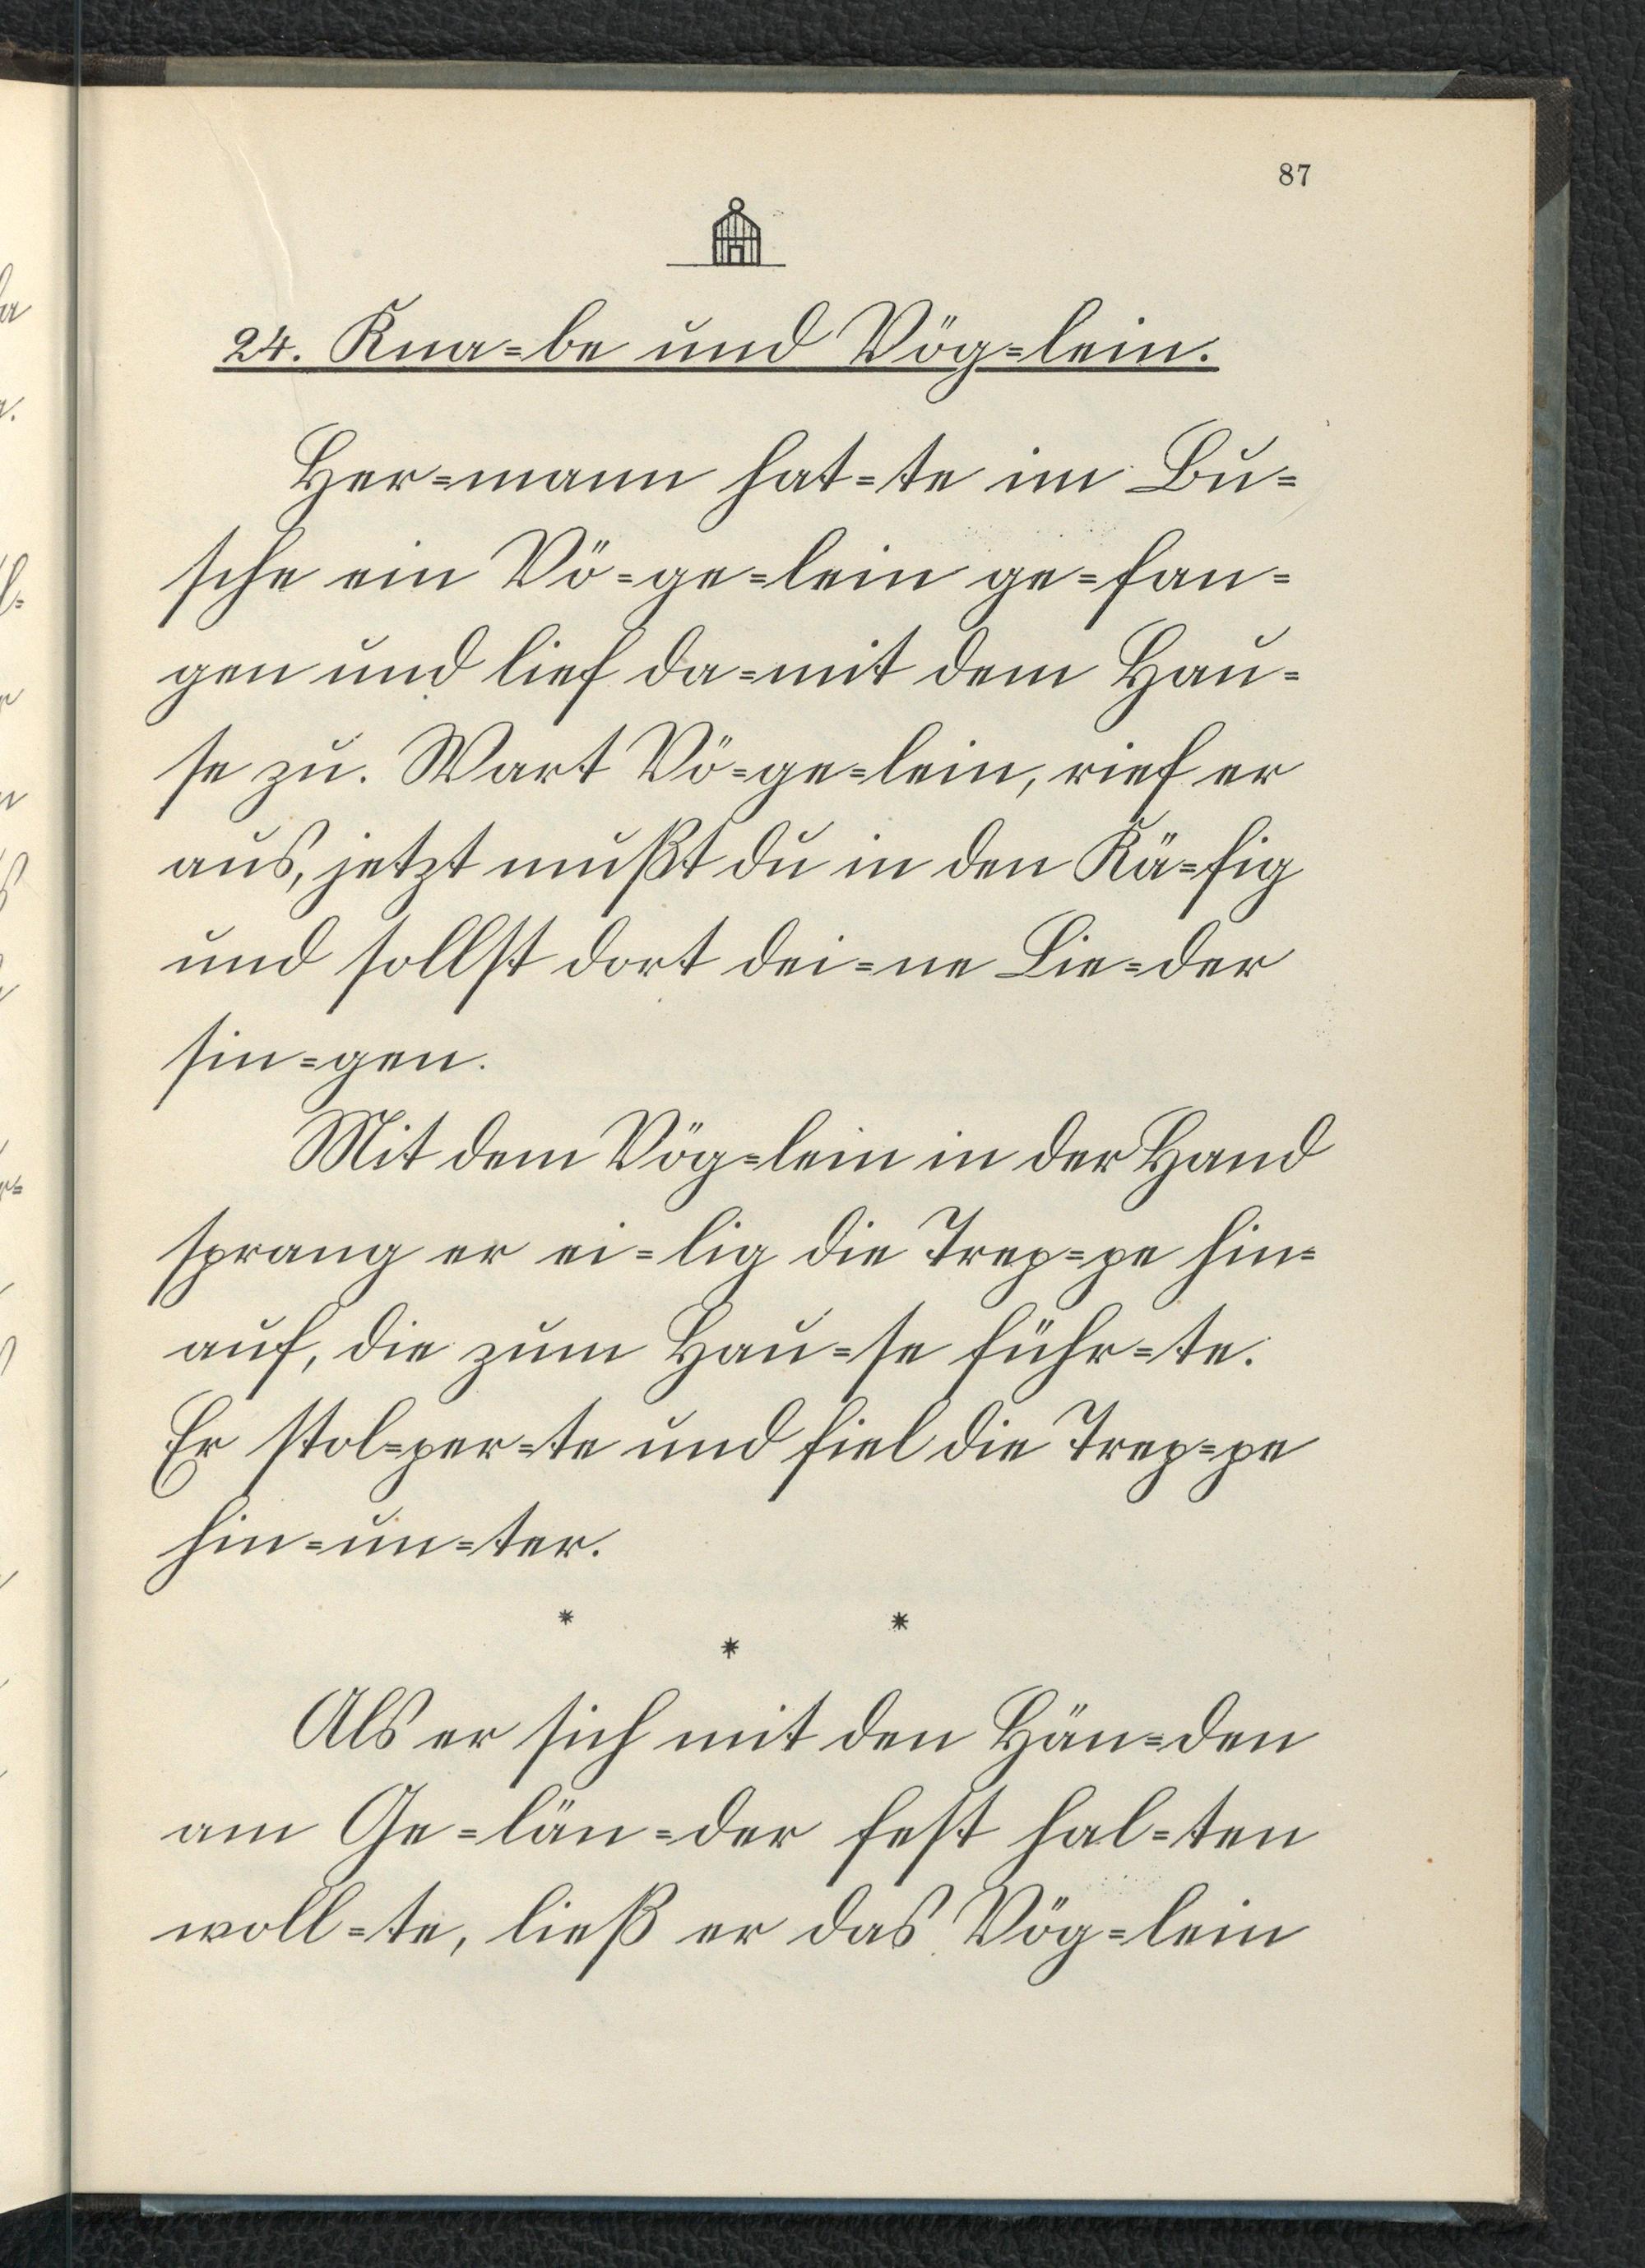 87
24. Kna=be und Vög=lein.
Her=mann hat=te im Bu=
sche ein Vö=ge=lein ge=fan=
gen und lief da=mit dem Hau=
se zu. Wart Vö=ge=lein, rief er
aus, jetzt mußt du in den Kä=fig
und sollst dort dei=ne Lie=der
sin=gen.
Mit dem Vög=lein in der Hand
sprang er ei=lig die Trep=pe hin=
auf, die zum Hau=se führ=te.
Er stol=per=te und fiel die Trep=pe
hin=un=ter.
* * *
Als er sich mit den Hän=den
am Ge=län=der fest hal=ten
woll=te, ließ er das Vög=lein